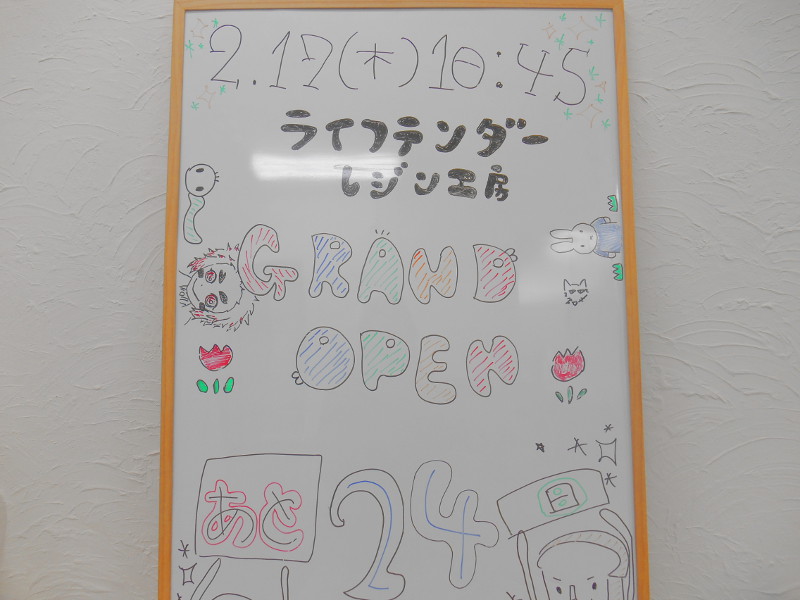 2.17(木)10:45
ライフテンダー
レジン工房
GRAND
OPEN
あと 24 日